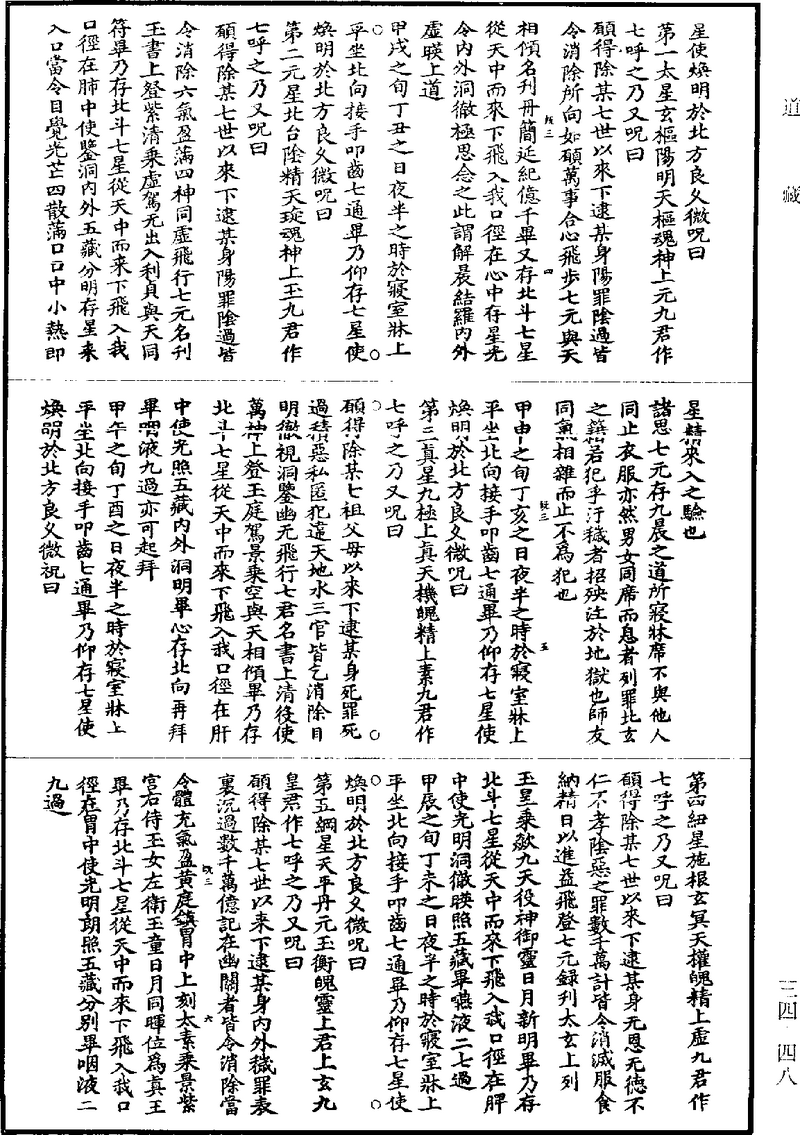 星使煥明於北方良久微呪曰
第一太星玄樞陽明天樞魂神上元九君作
七呼之乃又呪曰
願得除某七世以來下逮某身陽罪陰過皆
令消除所向如願萬事合心飛步七元與天
相傾名刊丹簡延紀億千畢又存北斗七星
從天中而來下飛入我口徑在心中存星光
令內外洞徹極思念之此謂解晨結羅內外
虛暎上道
甲戌之旬丁丑之日夜半之時於寢室牀上
平坐北向接手叩齒七通畢乃仰存七星使
煥明於北方良久微呪曰
第二元星北台陰精天琁魂神上玉九君作
七呼之乃又呪曰
願得除某七世以來下逮某身陽罪陰過皆
令消除六氣盈滿四神同虛飛行七元名刊
玉書上登紫清乘虛駕无出入利貞與天同
符畢乃存北斗七星從天中而來下飛入我
口徑在肺中使鑒洞內外五藏分明存星來
入口當令目覺光芒四散滿口口中小熱即
星精來入之驗也
諸思七元存九晨之道所寢牀席不與他人
同止衣服亦然男女同席而息者列罪北玄
之籍若犯乎汙穢者招殃注於地獄也師友
同氣相雜而止不為犯也
甲申之旬丁亥之日夜半之時於寢室牀上
平坐北向接手叩齒七通畢乃仰存七星使
煥明於北方良久微呪曰
第三真星九極上真天機魄精上素九君作
七呼之乃又呪曰
願得除某七祖父母以來下逮某身死罪死
過積惡私匿犯違天地水三官皆乞消除目
明徹視洞鑒幽无飛行七君名書上清後使
萬神上登玉庭駕景乘空與天相傾畢乃存
北斗七星從天中而來下飛入我口徑在肝
中使光照五藏內外洞明畢心存北向再拜
畢嚥液九過亦可起拜
甲午之旬丁酉之日夜半之時於寢室牀上
平坐北向接手叩齒七通畢乃仰存七星使
煥明於北方良久微祝曰
第四紐星施根玄冥天權魄精上虛九君作
七呼之乃又呪曰
願得除某七世以來下逮某身无恩无德不
仁不孝陰惡之罪數千萬計皆令消滅服食
納精日以進益飛登七元錄刊太玄上列
玉星乘歘九天役神御靈日月新明畢乃存
北斗七星從天中而來下飛入我口徑在脾
中使光明洞徹暎照五藏畢嚥液二七過
甲辰之旬丁未之日夜半之時於寢室牀上
平坐北向接手叩齒七通畢乃仰存七星使
煥明於北方良久微呪曰
第五綱星天平丹元玉衡魄靈上君上玄九
皇君作七呼之乃又呪曰
願得除某七世以來下逮某身內外穢罪表
裏沉過數千萬億記在幽關者皆令消除當
令體充氣盈黃庭鎮胃中上刻太素乘景紫
宮右侍玉女左衛玉童日月同暉位為真王
畢乃存北斗七星從天中而來下飛入我口
徑在胃中使光明朗照五藏分別畢咽液二
九過
道藏
三四 四八